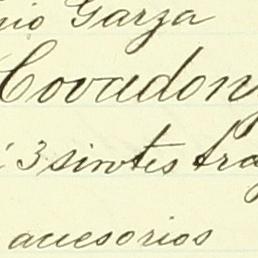 nio Garza
Covadon
3 sirotes tra
acesorios